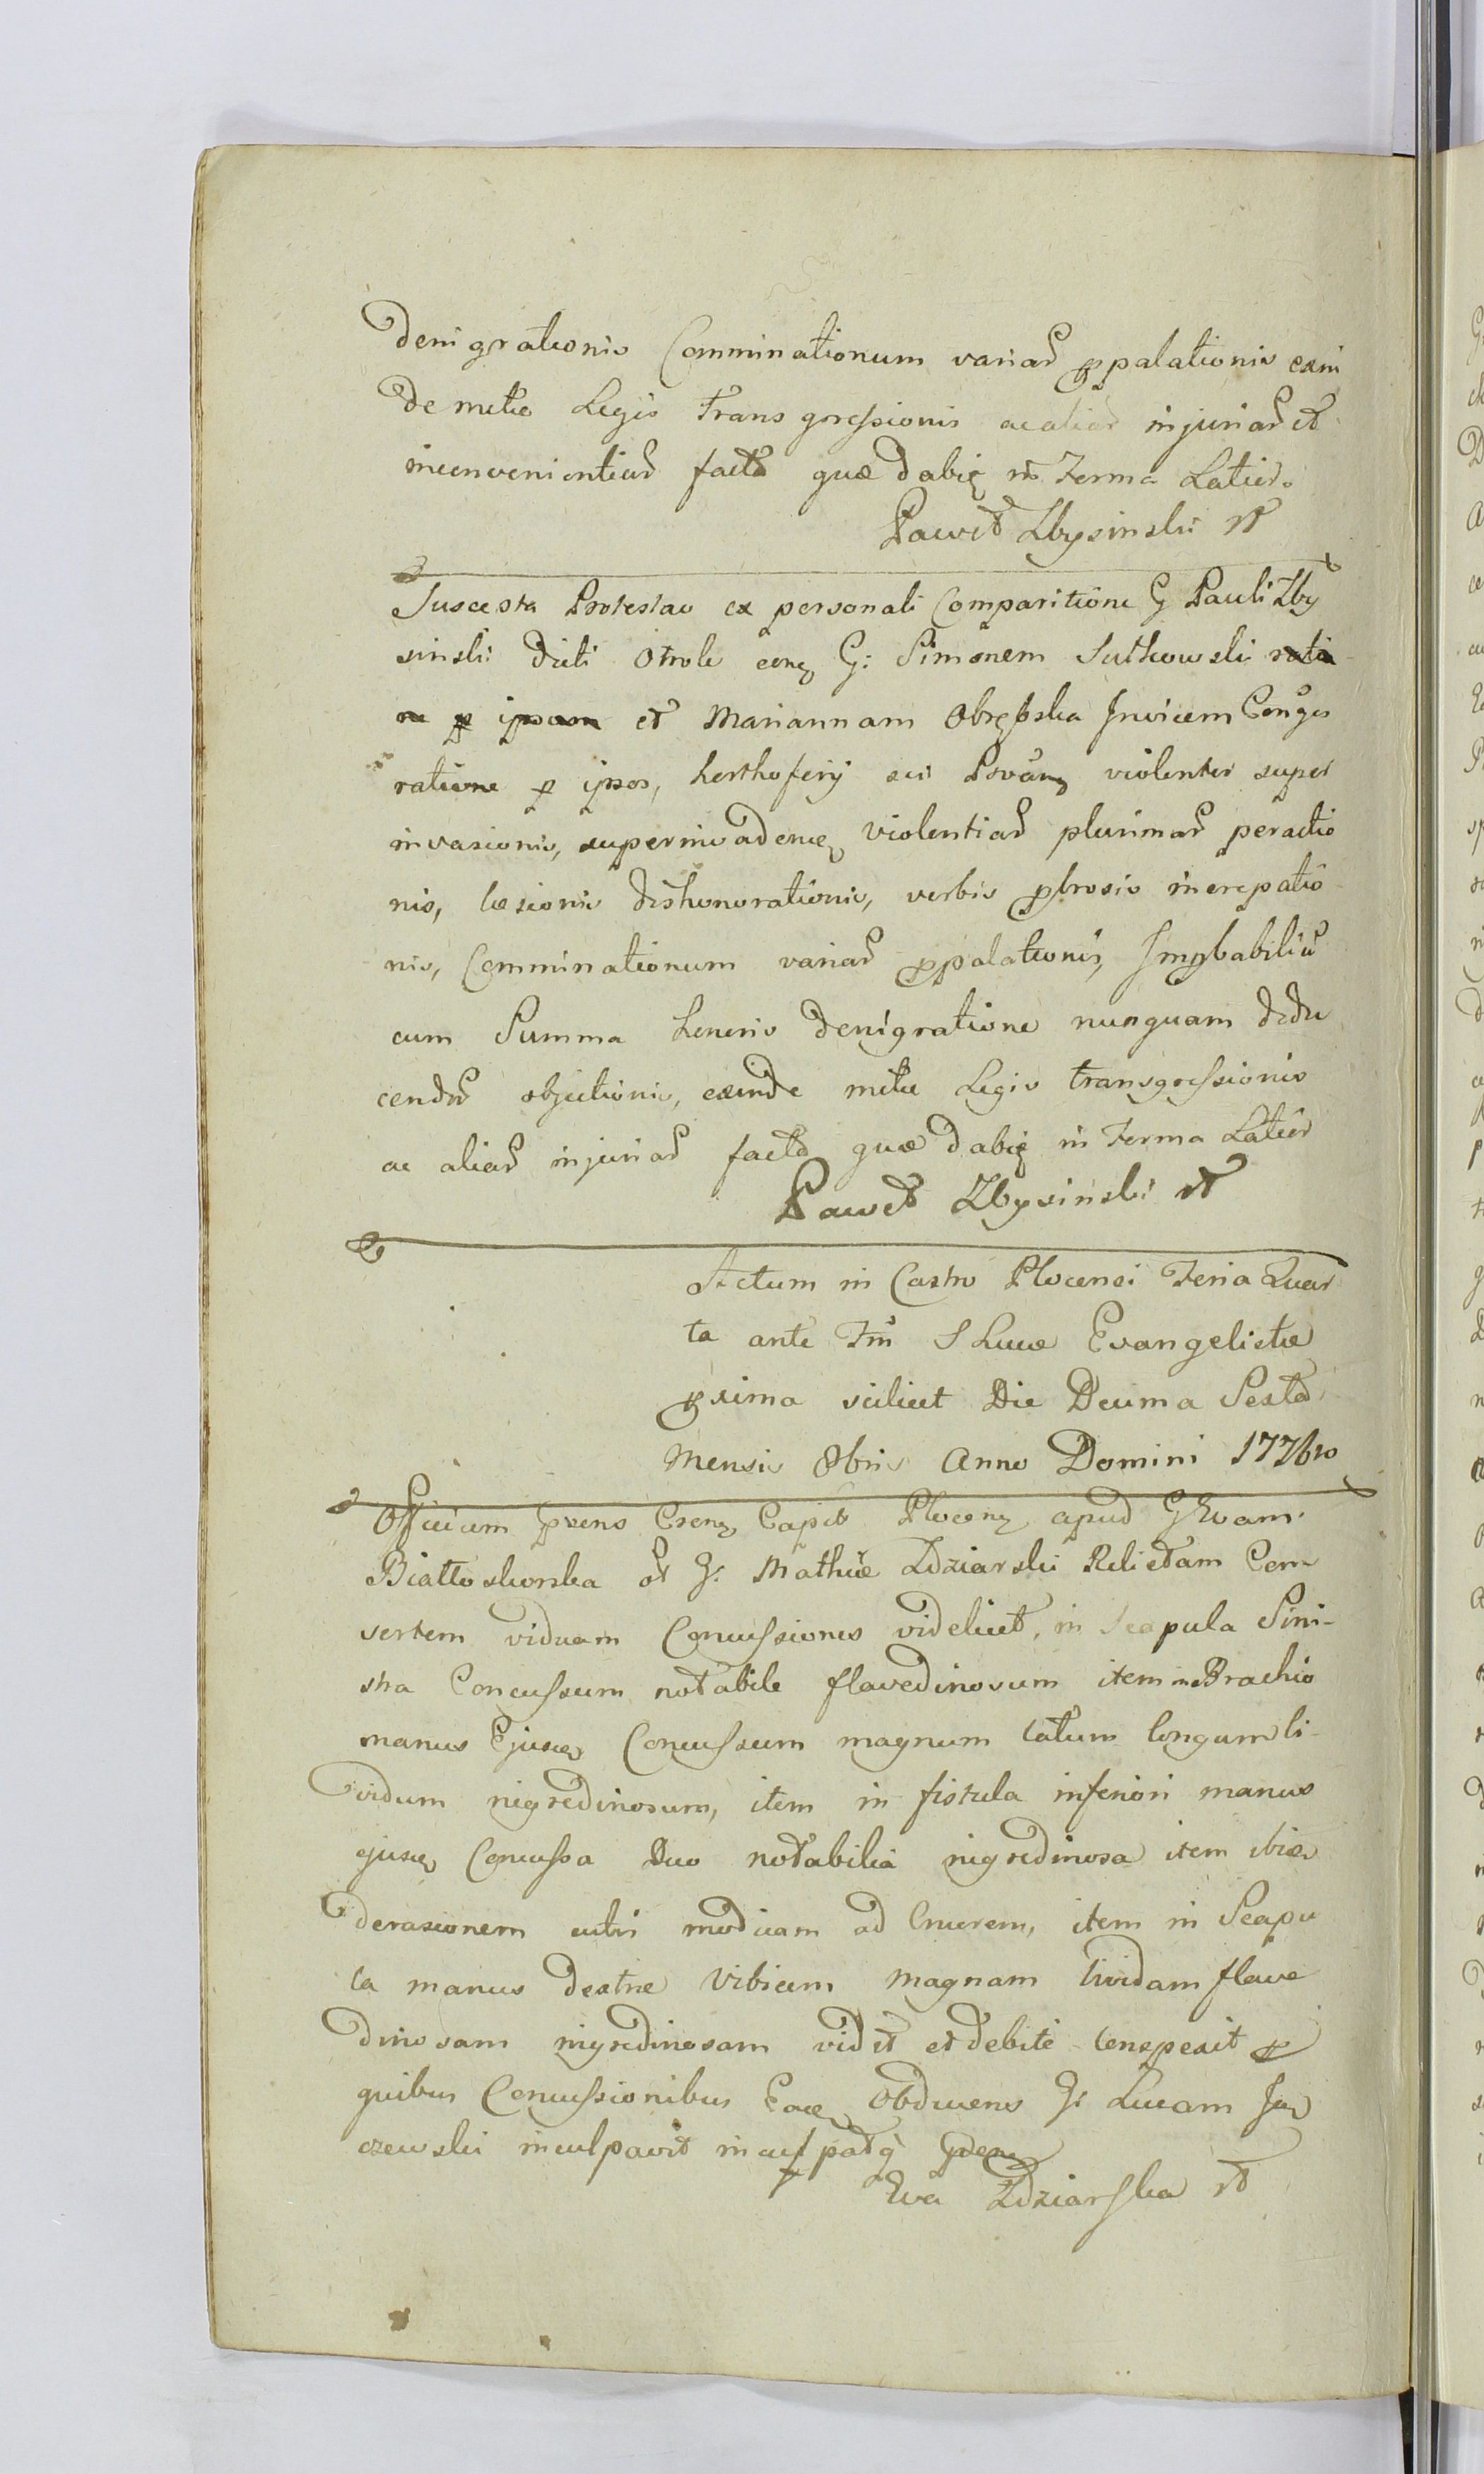 denigrationis Comminationum variar̃ ꝓpalationis exin
de metæ Legis Transgressionis ac aliar̃ injuriar̃ et
inconvenientiar̃ facta quæ dabit̃ in Forma Latior̃
Paweł Zbysinski
Suscepta Protestao ex personali Comparitione G Pauli Zby
sinski dicti Otrok G: Simonem Sutkowski
et Mariannam Obrębska Invicem Conges
ratione ꝑ ipsos, violenter super
invasionis, violentiar̃ plurimar̃ peractio
nis, læsionis dishonorationis, verbis ꝓbrosis increpatio
nis, Comminationum variar̃ ꝓpalationis, Imꝓbabiliũ
cum Summa honoris denigratione nunquam dedu
cendar̃ objectionis, exinde metæ Legis transgressionis
ac aliar̃ injuriar̃ facta quæ dabit̃ in Forma Latior̃
Paweł Zbysinski
Actum in Castro Plocensi Feria Quar
ta ante Fm̃ S Lucæ Evangelistæ
ꝓxima scilicet Die Decima Sexta
Mensis 8bris Anno Domini 1776to
Officium Capit Plocen apud G Evam
Białłoskorska G: Mathiæ Zdziarski Relictam Con
sortem viduam Concussiones videlicet, in Scapula Sini-
stra Concussum notabile flavedinosum item in Brachio
manus Ejusd Concussum magnum latum longum li-
vidum nigredinosum, item in fistula inferiori manus
ejusd Concussa Duo notabilia nigredinosa item ibid
derasionem cutis modicam ad Cruorem, item in Scapu
la manus dextræ Vibicem magnam lividam flave
dinosam nigredinosam vidit et debite conspexit ꝓ
quibus Concussionibus Ead Obducens G: Lucam
czewski inculpavit
Eva Zdziarska